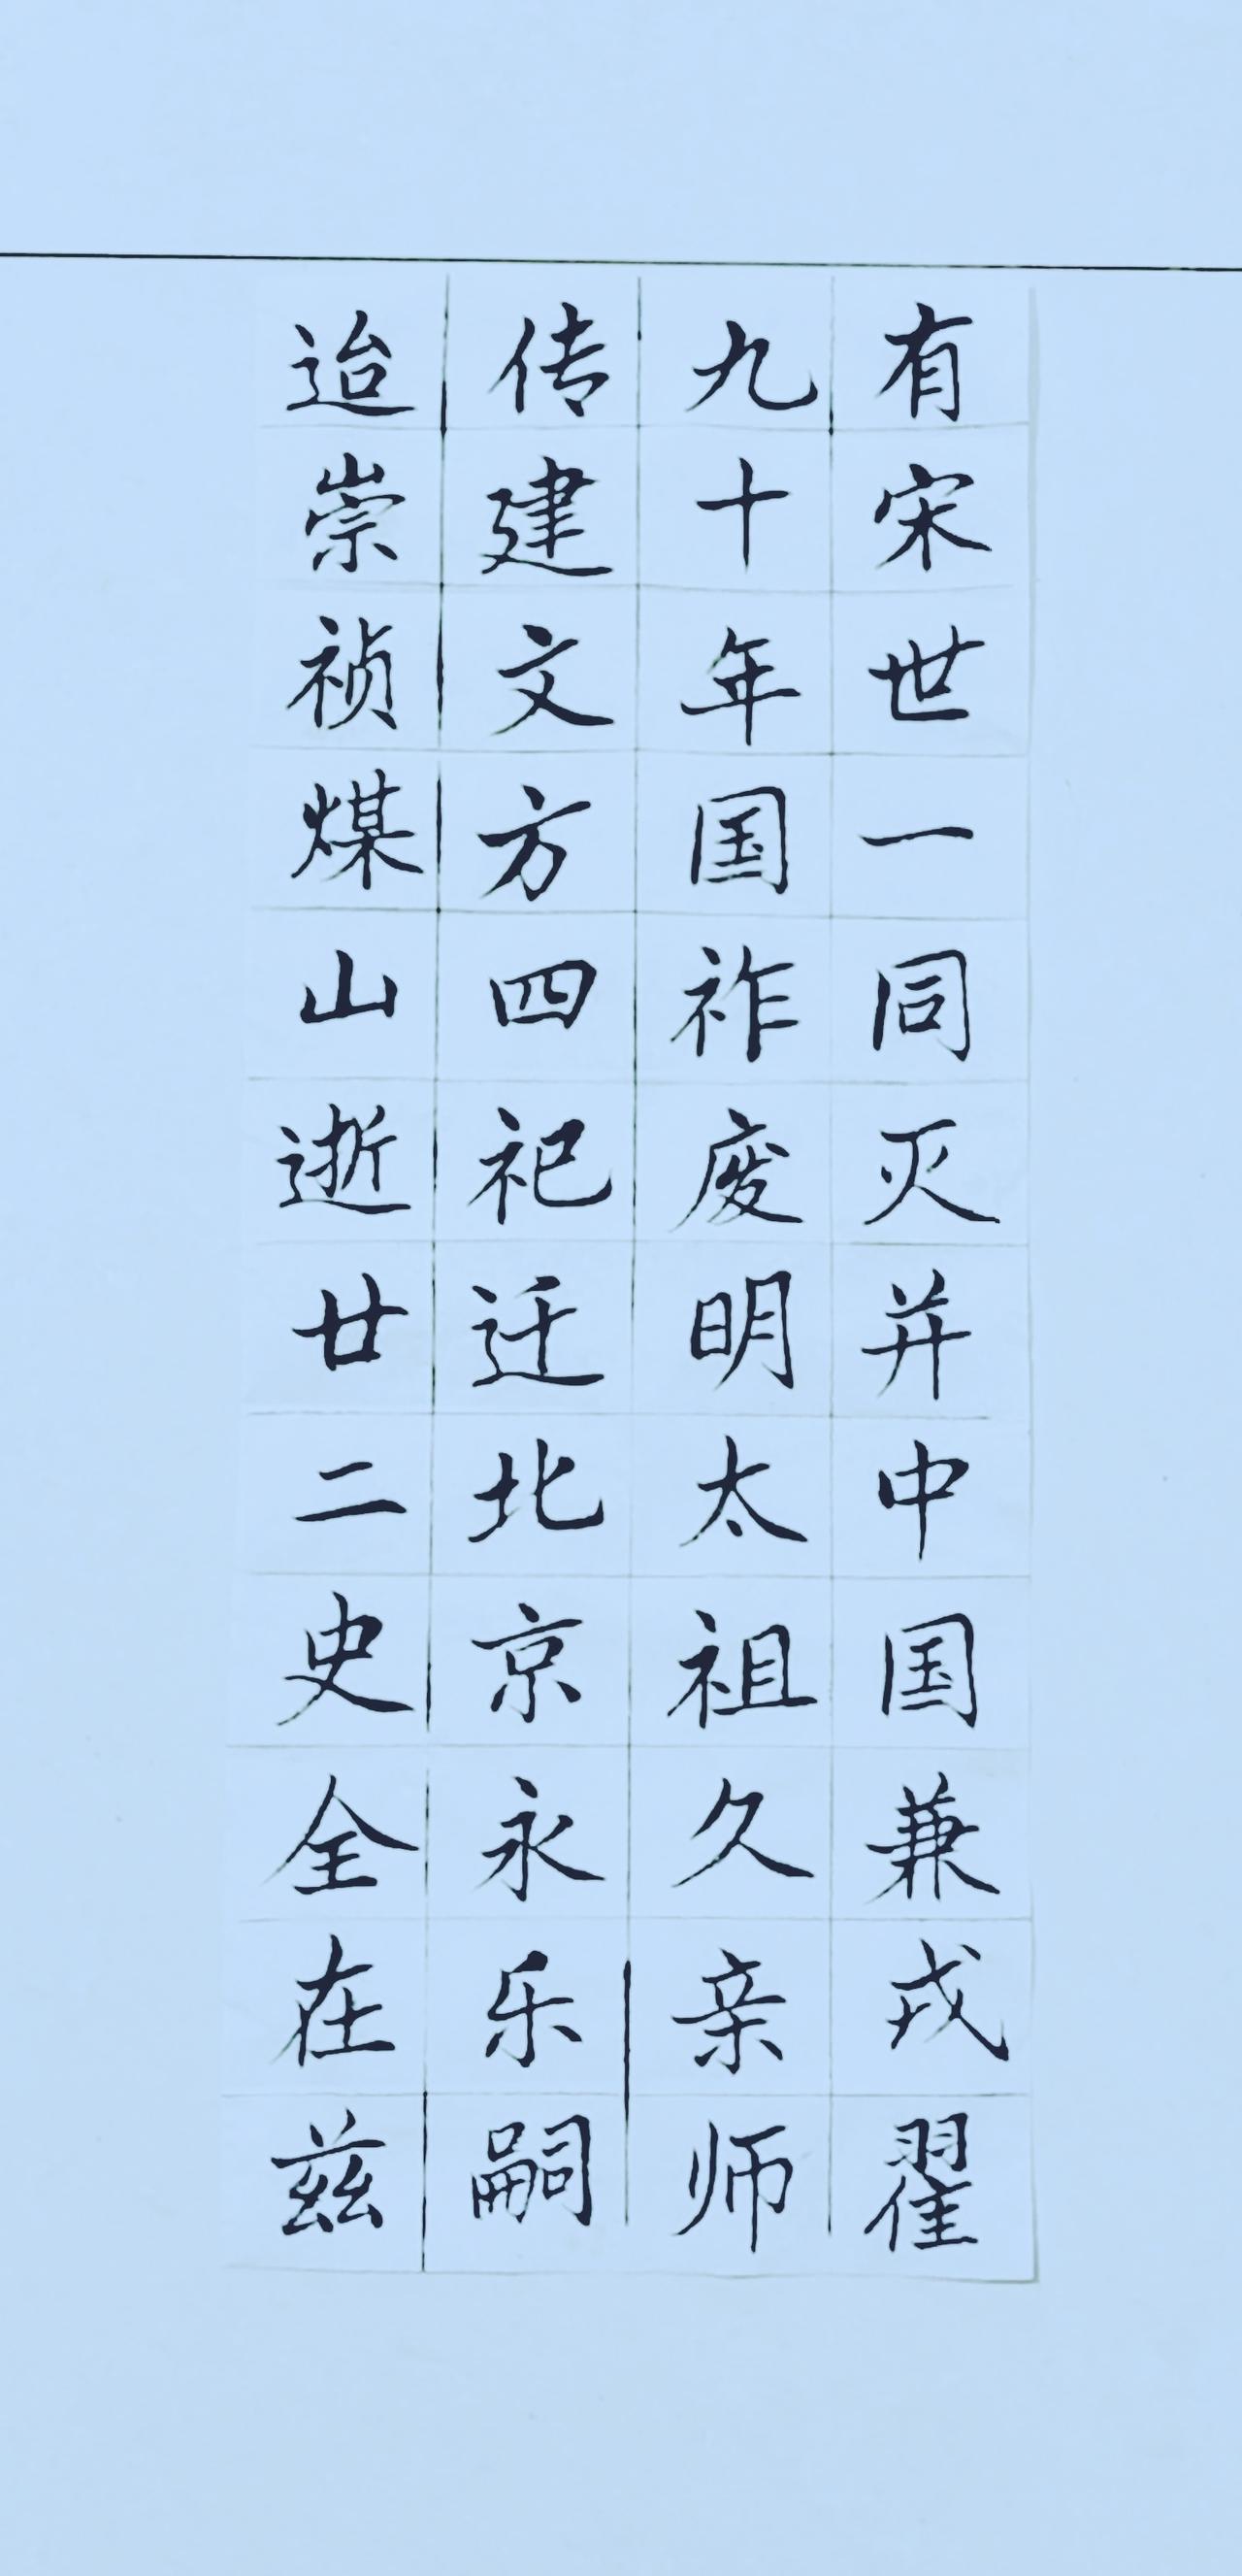 有宋世一同灭并中国兼戎翟
九十年国祚废明太祖久亲师
传建文方四祀迁北京永乐嗣
迨崇祯煤山逝廿二史全在兹